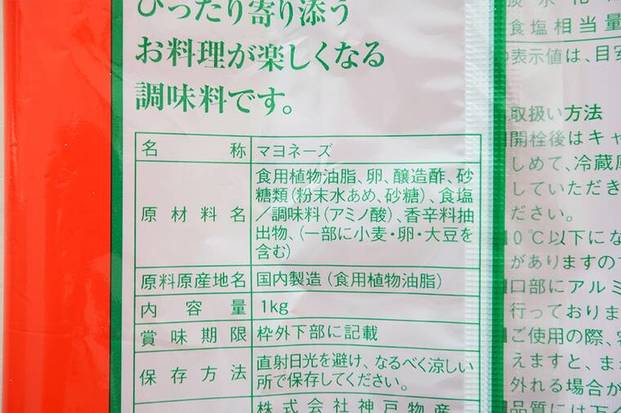 ぴったり寄り添う
お料理が楽しくなる
調味料です。
名称 マヨネーズ
原材料名 食用植物油脂、卵、醸造酢、砂
糖類(粉末水あめ、砂糖)、食塩
/調味料(アミノ酸)、香辛料抽
出物、(一部に小麦・卵・大豆を
含む)
原料原産地名 国内製造(食用植物油脂)
内容量 1kg
賞味期限 枠外下部に記載
保存方法 直射日光を避け、なるべく涼しい
所で保存してください。
株式会社神戸物産
食塩相当量
表示値は、目安
取扱い方法
開栓後はキャ
しめて、冷蔵
していただき
ださい。
0℃以下にな
がありますので
口部にアルミ
行っておりま
ご使用の際、
えますと、ま
外れる場合が
品質には